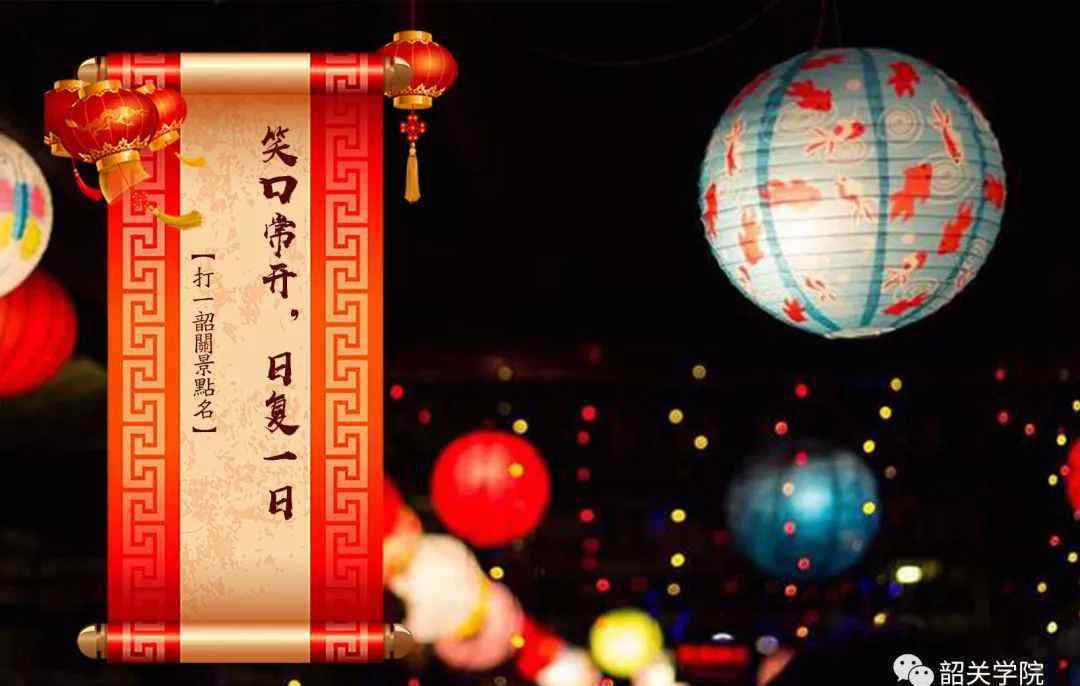 笑口常开，日复一日
【打一韶關景點名】
韶关学院